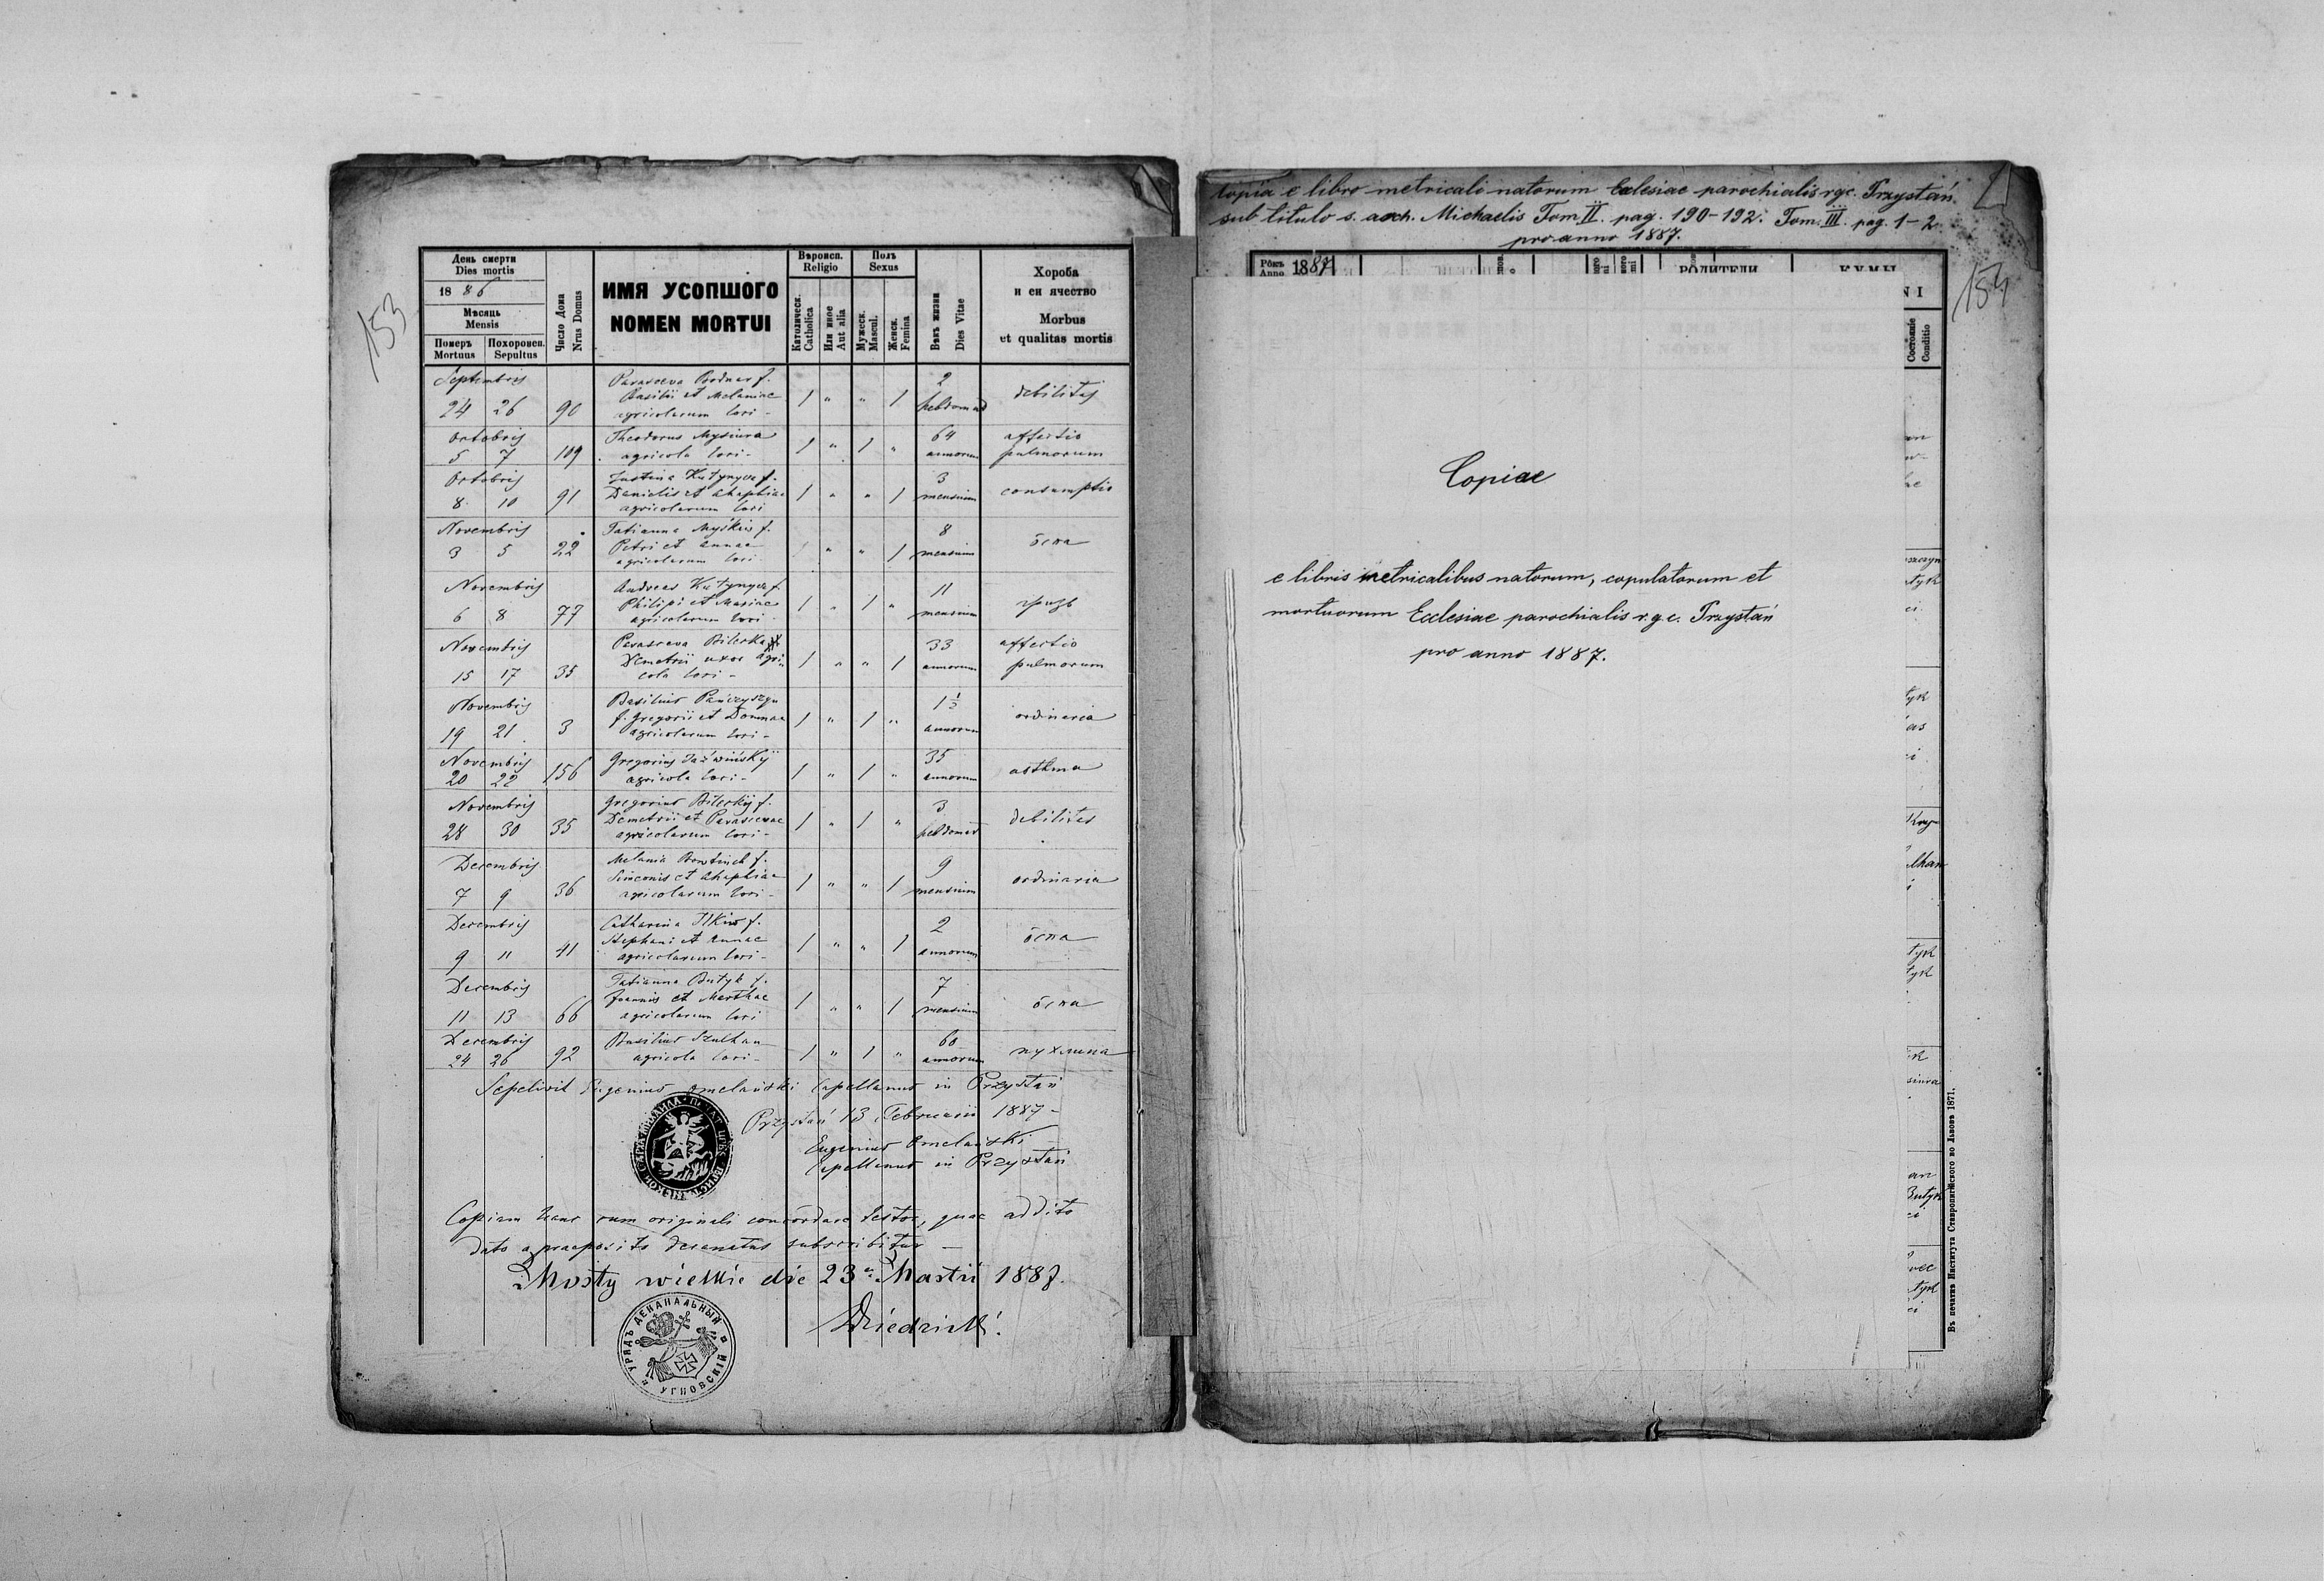 153
День смерти
Dies mortis
1886
Мѣсяць
Mensis
Померъ
Mortuus
Похоронен.
Sepultus
Число Дома
Nrus Domus
ИМЯ УСОПШОГО
NOMEN MORTUI
Вѣроисп.
Religio
Католическ.
Catholica
Или иное
Aut alia
Полъ
Sexus
Мужеск.
Mascul.
Женск.
Femina
Вѣкъ жизни
Dies Vitae
Хороба
и еи ячество
Morbus
et qualitas mortis
Septembris
24 26 90
Parasceva Bodnar f.
Basilii et Melaniae
agricolarum loci -
1 " " 1
2
hebdomad
debilitas
Octobris
5 7 109
Theodorus Mysiura
agricola loci -
1 " 1 "
64
annorum
affectio
pulmorum
Octobris
8 10 91
Justina f.
Danielis et Ahaphiae
agricolarum loci
1 " " 1
3
mensium
consumptio
Novembris
3 5 22
Tatianna Myśkiw f.
Petri et Annae
agricolarum loci
1 " " 1
8
mensium
оспа
Novembris
6 8 77
Andreas f.
Philipi et Mariae
agricolarum loci
1 " 1 "
11
mensium
Novembris
15 17 35
Parasceva Bilecka
Demetrii uxor agri
cola loci -
1 " " 1
33
annorum
affectio
pulmorum
Novembris
19 21 3
Basilius Pańczyszyn
f. Gregorii et Domnae
agricolarum loci -
1 " 1 "
annorum
ordinaria
Novembris
20 22 156
Gregorius Jaźwińskij
agricola loci -
1 " 1 "
35
annorum
asthma
Novembris
28 30 35
Gregorius Bileckij f.
Demetrii et Parascevae
agricolarum loci -
1 " 1 "
3
hebdomad
debilitas
Decembris
7 9 36
Melania f.
Simeonis et Ahaphiae
agricolarum loci -
1 " " 1
9
mensium
ordinaria
Decembris
9 11 41
Catharina Ilkiw f.
Stephani et Annae
agricolarum loci -
1 " " 1
2
annorum
оспа
Decembris
11 13 66
Tatianna Butyk f.
Joannis et Marthae
agricolarum loci
1 " " 1
7
mensium
оспа
Decembris
24 26 92
Basilius Szulhan
agricola loci -
1 " 1 "
60
annorum
пухлина
Sepelivit Eugenius Omelański Capellanus in Przystań
Przystań 13 Februarii 1887 -
Eugenius Omelański
Capellanus in Przystań
Copiam hanc cum originali concordare testor, quae addito
dato a praeposito decanatus subscribitur -
Mosty wielkie die 23 Martii 1887.
УРЯДЪ ДЕКАНАЛЬНЫЙ
УГНОВСКІЙ
Copia e libro metricali natorum Eclesiae parochialis rgc. Przystań
sub titulo s. arch. Michaelis Tom II. pag. 190-192. Tom. III. pag. 1-2
pro anno 1887.
154
Рôкъ
Anno 1887
РОДИТЕЛИ
КУМЫ
Состояніе
Conditio
Copiae
e libris metricalibus natorum, copulatorum et
mortuorum Ecclesiae parochialis r.g.c. Przystań
pro anno 1887.
Въ печатни Института Ставропигійского во Львовѣ 1871.